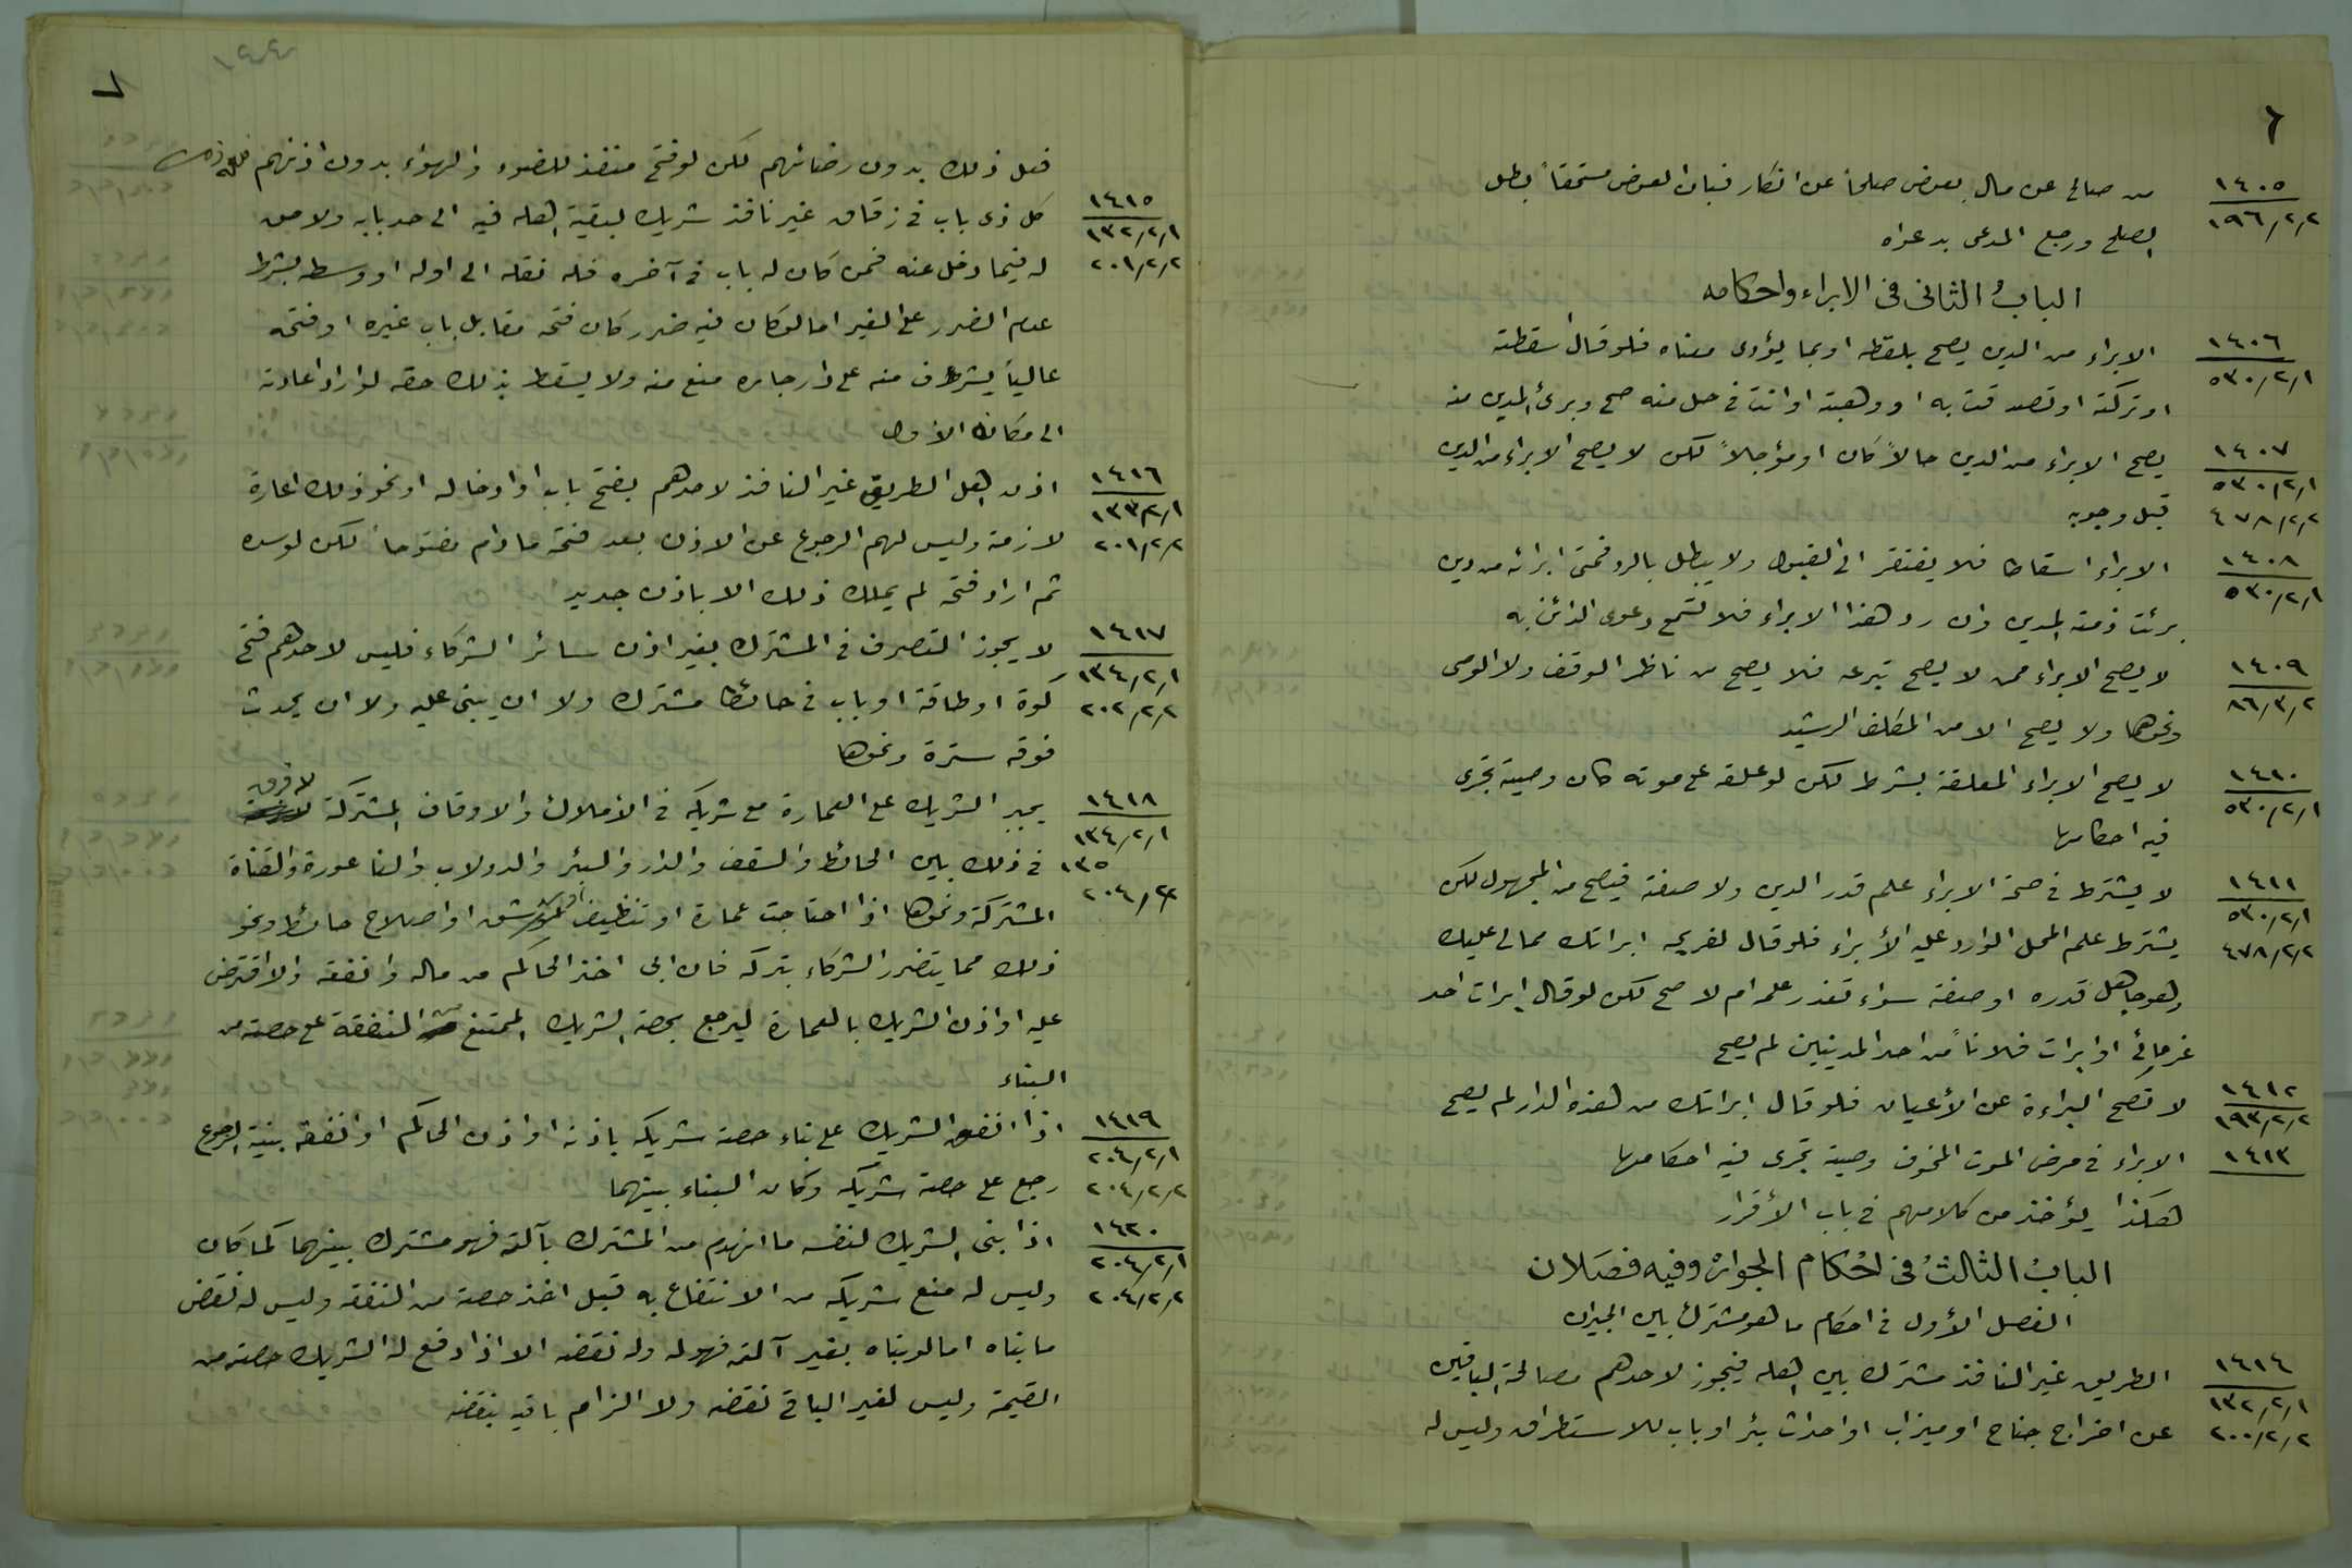 ٦
١٤٠٥
١٩٦/٢/٢
من صالح عن مال بعوض صلحاً عن انكار فبان العوض مستحقاً بطل
الصلح ورجع المدعى بدعواه
الباب الثانى فى الابراء واحكامه
١٤٠٦
٥٣٠/٢/١
الابراء من الدين يصح بلفظه او بما يؤدى معناه فلو قال اسقطته
او تركته او تصدقت به او وهبته او انت فى حل منه صح وبرئ المدين منه
١٤٠٧
٥٣٠/٢/١
٤٧٨/٢/٢
يصح الابراء من الدين حالاً كان او مؤجلاً لكن لا يصح الابراء من الدين
قبل وجوبه
١٤٠٨
٥٣٠/٢/١
الابراء اسقاط فلا يفتقر الى القبول ولا يبطل بالرد فمتى ابرائه من دين
برئت ذمة المدين وان رد هذا الابراء فلا تسمع دعوى الدائن به
١٤٠٩
٨٦/٣/٢
لا يصح الابراء ممن لا يصح تبرعه فلا يصح من ناظر الوقف ولا الوصى
ونحوهما ولا يصح الا من المكلف الرشيد
١٤١٠
٥٣٠/٢/١
لا يصح الابراء المعلقة بشرط لكن لو علقه على موته كان وصية تجرى
فيه احكامها
١٤١١
٥٣٠/٢/١
٤٧٨/٢/٢
لا يشترط فى صحة الابراء علم قدر الدين ولا صفته فيصح من المجهول لكن
يشترط علم المحل الوارد عليه الأبراء فلو قال لغريمه ابراتك مما لى عليك
وهو جاهل قدره او صفته سواء تعذر علمه ام لا صح لكن لو قال ابرات احد
غرمائى او ابرات فلاناً من احد المدينين لم يصح
١٤١٢
١٩٣/٢/٢
لا تصح البراءة عن الأعيان فلو قال ابراتك من هذه الدار لم يصح
١٤١٣
الابراء فى مرض الموت المخوف وصية تجرى فيه احكامها
هكذا يؤخذ من كلامهم فى باب الأقرار
الباب الثالث فى احكام الجوار وفيه فصلان
الفصل الأول فى احكام ما هو مشترك بين الجيران
١٤١٤
١٣٢/٢/١
٢٠٠/٢/٢
الطريق غير النافذ مشترك بين اهله فيجوز لاحدهم مصالحة الباقين
عن اخراج جناح او ميزاب او احداث بئر او باب للاستطراق وليس له
٧
فعل ذلك بدون رضائهم لكن لو فتح منفذ للضوء والهواء بدون اذنهم فله ذلك
١٤١٥
١٣٢/٢/١
٢٠١/٢/٢
كل ذى باب فى زقاق غير نافذ شريك لبقية اهله فيه الى حد بابه ولا حق
له فيما دخل عنه فمن كان له باب فى آخره فله نقله الى اوله او وسطه بشرط
عدم الضرر على الغير اما لو كان فيه ضرر كان فتحه مقابل باب غيره او فتحه
عالياً يشرف منه على دار جاره منع منه ولا يسقط بذلك حقه لو اراد اعادته
الى مكانه الأول
١٤١٦
١٣٣/٢/١
٢٠١/٢/٢
اذن اهل الطريق غير النافذ لاحدهم بفتح باب او ادخاله او نحو ذلك اعارة
لازمة وليس لهم الرجوع عن الاذن بعد فتحه ما دام مفتوحاً لكن لو سده
ثم اراد فتحه لم يملك ذلك الا باذن جديد
١٤١٧
١٣٤/٢/١
٢٠٢/٢/٢
لا يجوز التصرف فى المشترك بغير اذن سائر الشركاء فليس لاحدهم فتح
كوة او طاقة او باب فى حائط مشترك ولا ان يبنى عليه ولا ان يحدث
فوقه سترة ونحوها
١٤١٨
١٣٤/٢/١
١٣٥
٢٠٤/٢/٢
يجبر الشريك على العمارة مع شريكه فى الأملاك والاوقاف المشتركة لا فرق
فى ذلك بين الحائط والسقف والدار والبئر والدولاب والناعورة والقناة
المشتركة ونحوها اذا احتاجت عمارة او تنظيف او اصلاح حائط ونحو
ذلك مما يتضرر الشركاء بتركه فان ابى اخذ الحاكم من ماله وانفقه والا اقترض
عليه او اذن الشريك بالعمارة ليرجع بحصة الشريك الممتنع النفقة على حصته من
البناء
١٤١٩
٢٠٤/٢/١
٢٠٤/٢/٢
اذا انفق الشريك على بناء حصة شريكه باذنه او اذن الحاكم او انفقه بنية الرجوع
رجع على حصة شريكه وكان البناء بينهما
١٤٢٠
٢٠٤/٢/١
٢٠٤/٢/٢
اذا بنى الشريك لنفسه ما انهدم من المشترك بآلته فهو مشترك بينهما كما كان
وليس له منع شريكه من الانتفاع به قبل اخذ حصته من النفقة وليس له نقض
ما بناه اما لو بناه بغير آلته فهو له وله نقضه الا اذا دفع له الشريك حصته من
القيمة وليس لغير البانى نقضه ولا الزام بانيه بنقضه